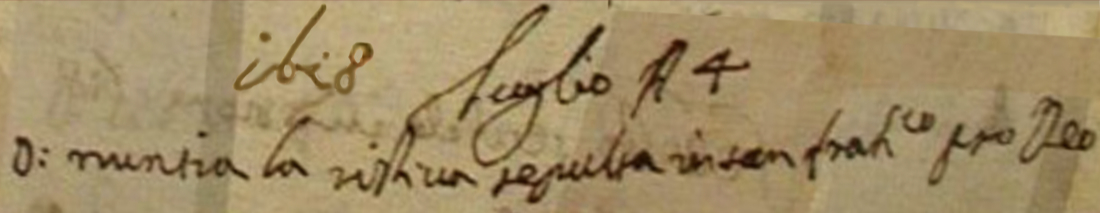 ibi8 Luglio A 4
D: nuntia la ristiva sepulta in san fran^co pro Deo